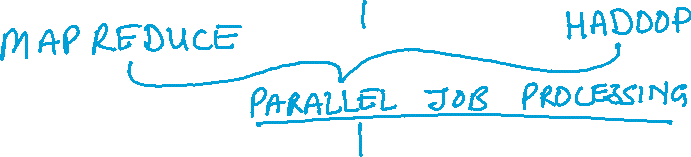 MAP REDUCE HADOOP
PARALLEL JOB PROCESSING